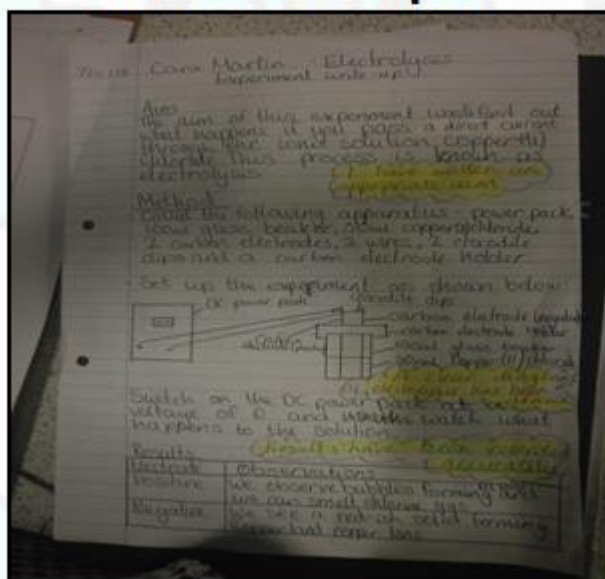 Cara Martin Electrolysis
Experiment write up!
Aim
The aim of this experiment was to find out
what happens if you pass a direct current
through the ionic solution, copper(II)
chloride. This process is known as
electrolysis
I have written an
appropriate aim
Method
Collect the following apparatus - power pack,
100ml glass beaker, 50ml copper(II) chloride,
2 carbon electrodes, 2 wires, 2 crocodile
clips and a carbon electrode holder
Set up the experiment as shown below
DC power pack
crocodile clips
carbon electrode
carbon electrode holder
100ml glass beaker
50ml copper(II) chloride
clear diagram
Switch on the DC power pack
voltage of 6 and watch what
happens to the solution.
Results
results have been recorded
accurately
Electrode
Observations
Positive
we observe bubbles forming and
we can smell chlorine gas
Negative
we see a red-ish solid forming